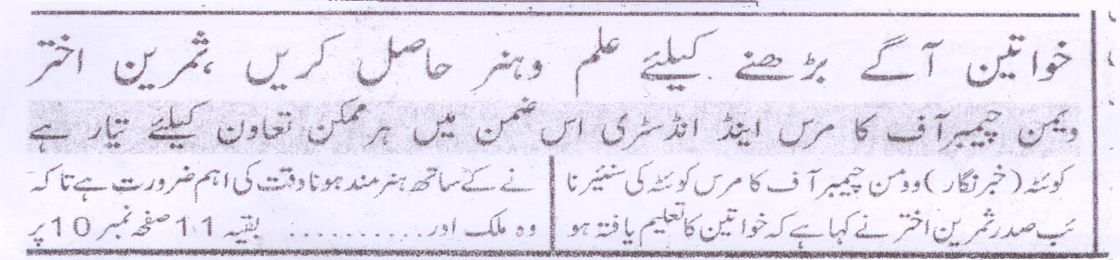 خواتین آگے بڑھنے کیلئے علم وہنر حاصل کریں ،ثمرین اختر
ویمن چیمبرآف کا مرس اینڈ انڈسٹری اس ضمن میں ہرممکن تعاون کیلئے تیار ہے
کوئٹہ (خبرنگار) وومن چیمبر آف کا مرس کوئٹہ کی سنیئر نا
ئب صدر ثمرین اختر نے کہا ہے کہ خواتین کا تعلیم یافتہ ہو
نے کے ساتھ ہنر مند ہونا وقت کی اہم ضرورت ہے تا کہ
وہ ملک اور........... بقیہ 11 صفحہ نمبر 10 پر